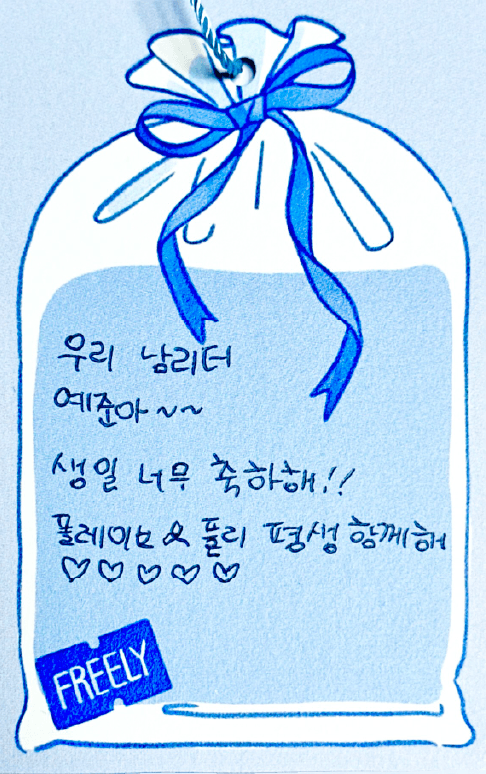 우리 남리더
예준아~~
생일 너무 축하해!!
플레이브 & 플리 평생 함께해
♡♡♡♡♡
FREELY